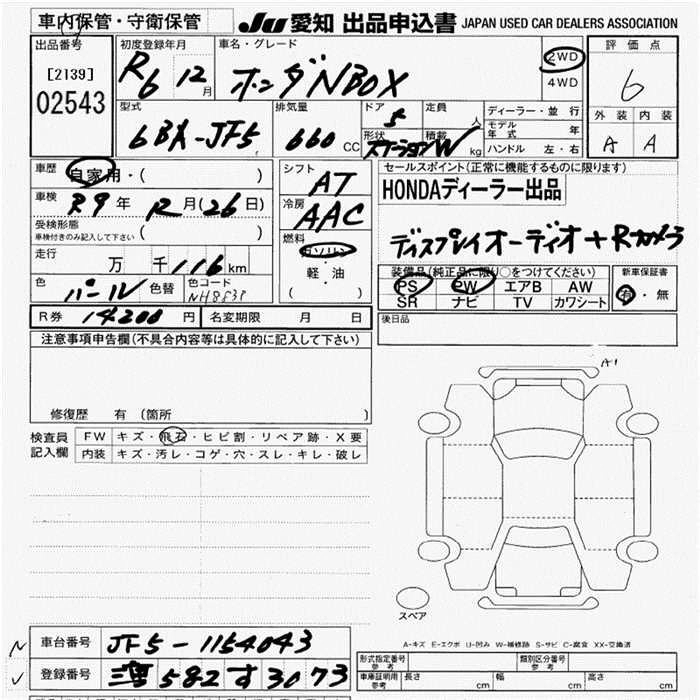 車内保管・守衛保管 JU 愛知 出品申込書 JAPAN USED CAR DEALERS ASSOCIATION
出品番号 初度登録年月 車名・グレード 評価点
[2139] R6 12月 ホンダNBOX 2WD 6
02543 4WD
型式 排気量 ドア 定員 ディーラー・並行 外装 内装
6BA-JF5 660 CC 5 人 モデル年式 年 A A
形状 ステーションW 積載 kg ハンドル 左・右
車歴 自家用・( ) シフト AT セールスポイント(正常に機能するものに限ります)
車検 R9年 12月(26日) 冷房 AAC HONDAディーラー出品
受検形態 ( )
車検付きのみ記入して下さい
燃料 ガソリン ディスプレイオーディオ+Rカメラ
走行 万 千116km 軽・油
装備品(純正品に限り○をつけてください) 新車保証書
色 パール 色替 色コード NH883P ( ) PS PW エアB AW 有・無
SR ナビ TV カワシート
R券 14200円 名変期限 月 日 後日品
注意事項申告欄(不具合内容等は具体的に記入して下さい)
A1
修復歴 有 (箇所 )
検査員 FW キズ・飛石・ヒビ割・リペア跡・X要
記入欄 内装 キズ・汚レ・コゲ・穴・スレ・キレ・破レ
スペア
A-キズ E-エクボ U-凹み W-補修跡 S-サビ C-腐食 XX-交換済
車台番号 JF5-1154043
形式指定番号 参考 類別区分番号 参考
登録番号 582す3073
車庫証明用 参考 長さ cm 幅 cm 高さ cm